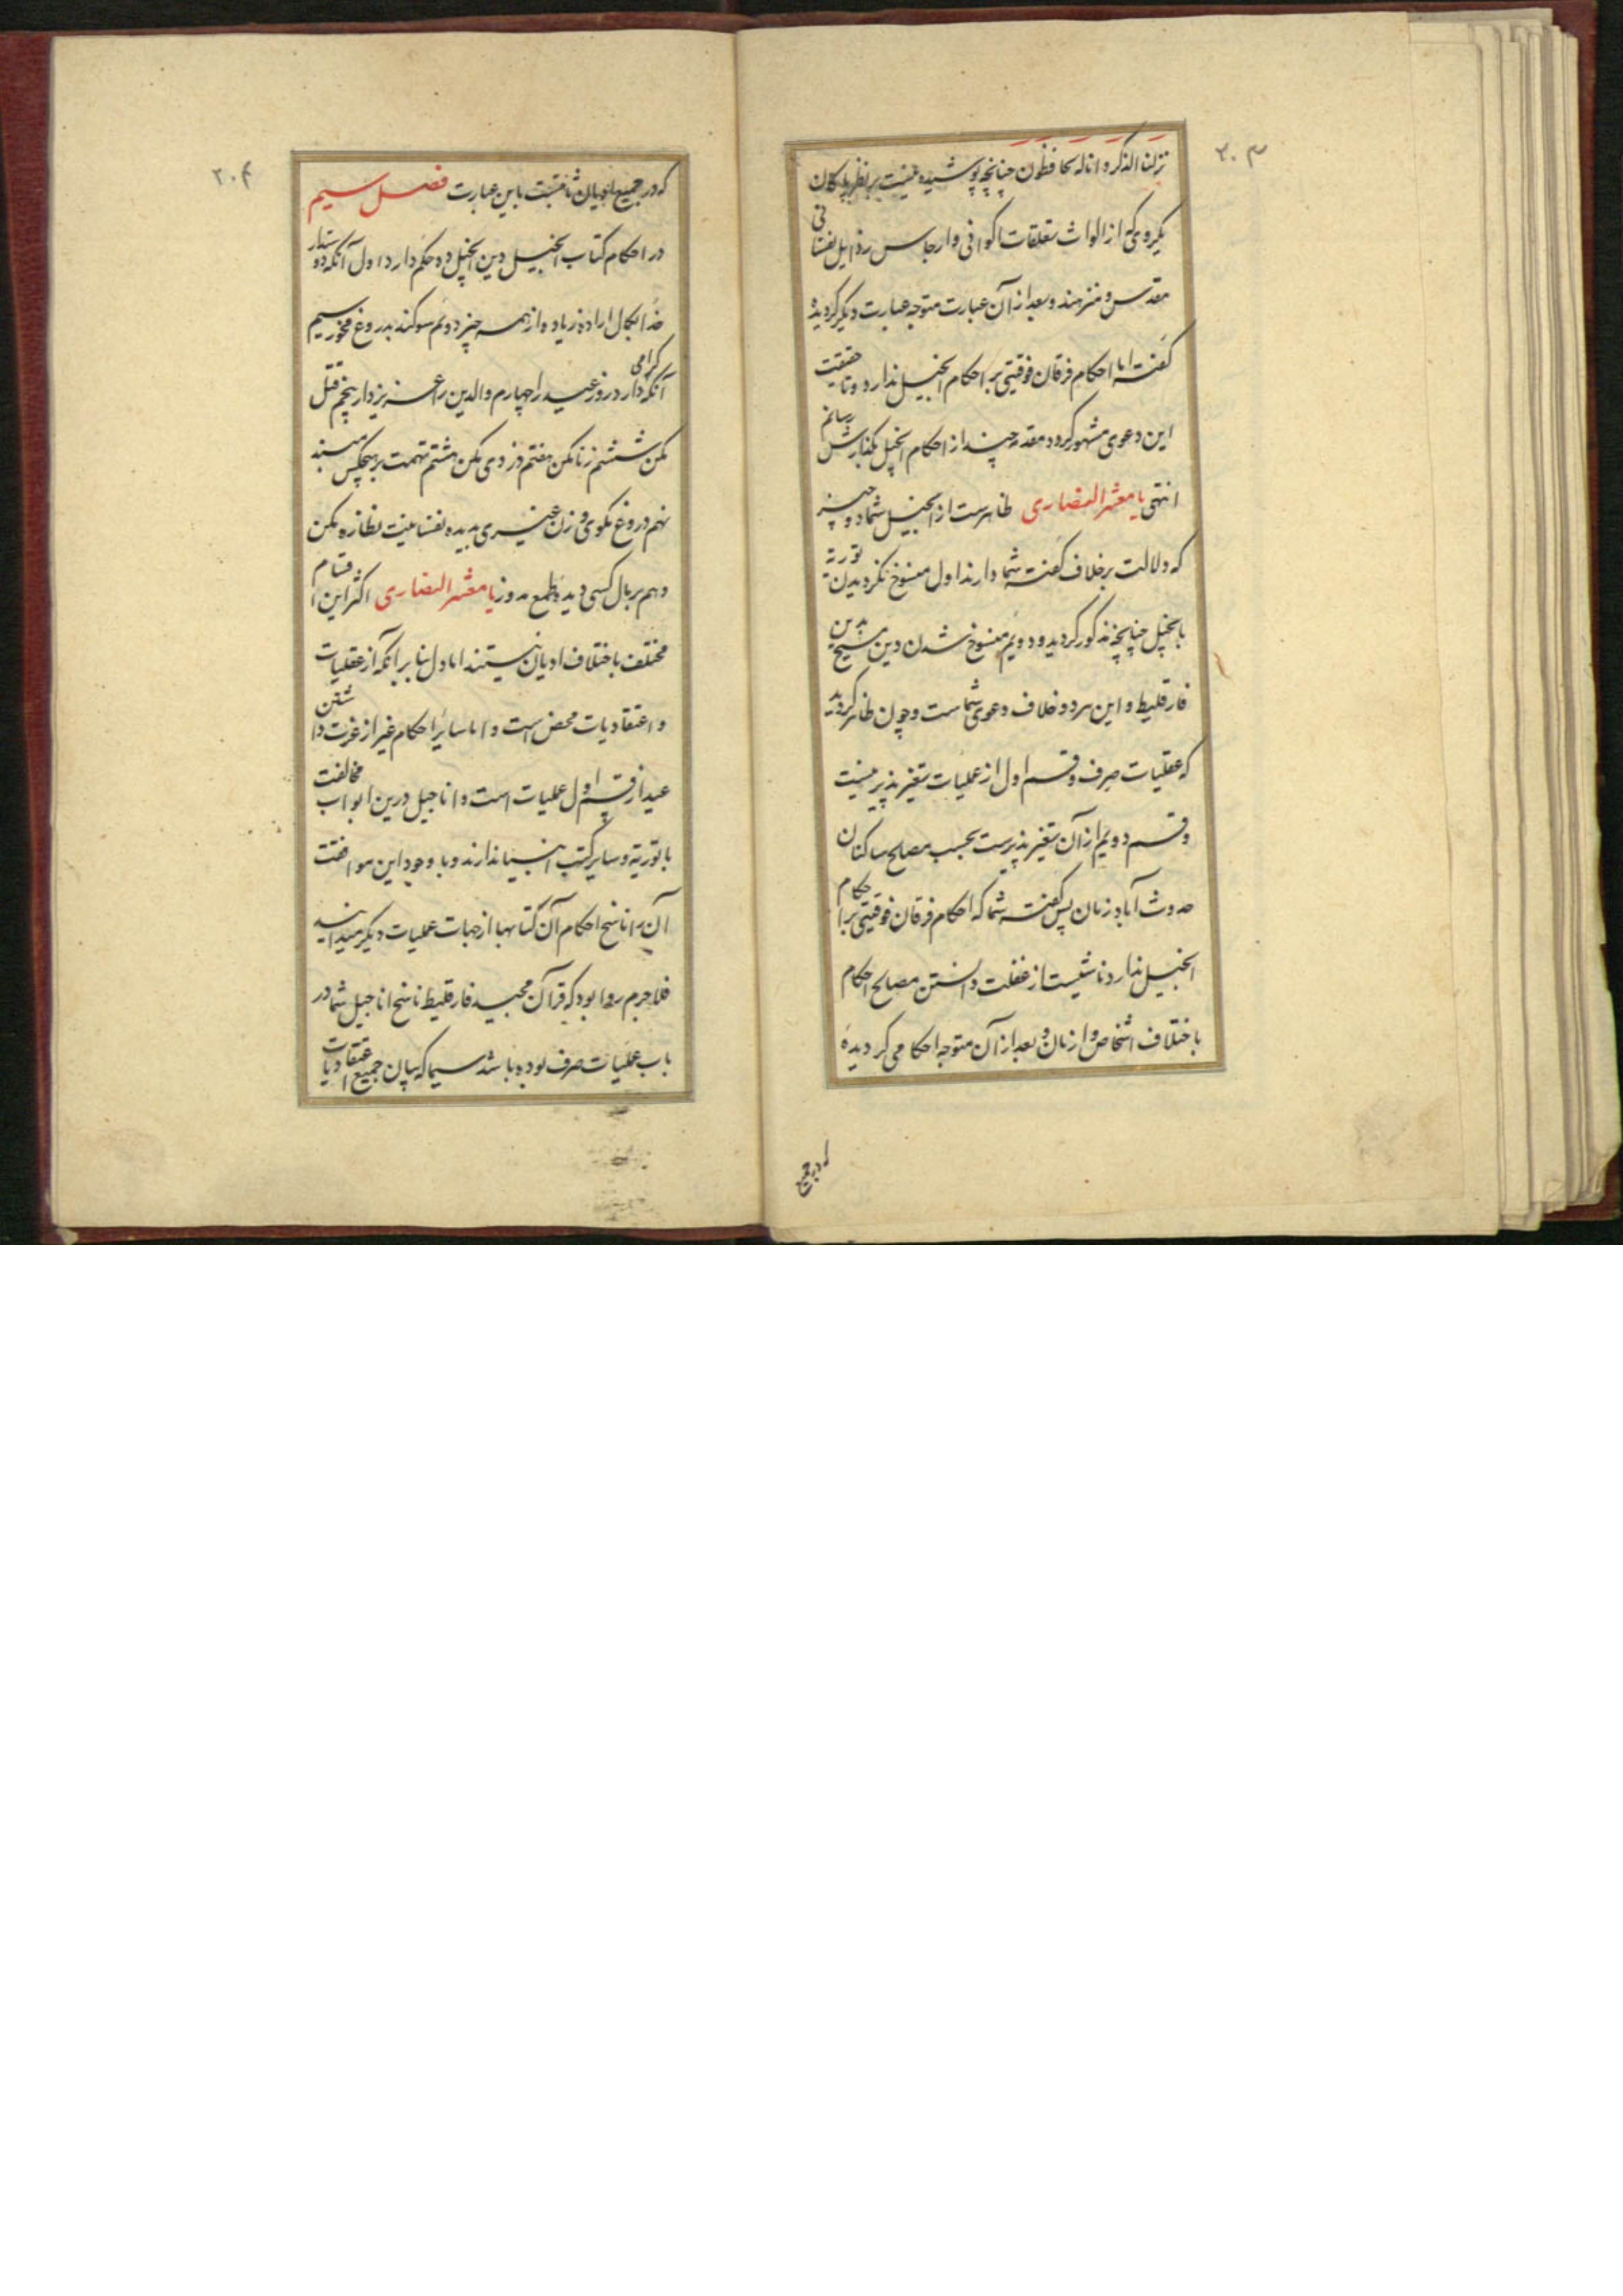 ۲۰۳
نزلنا الذکر و انا له لحافظون چنانچه پوشیده نیست بر نظر پاکان
بکروی که از الواث تعلقات اکوانی و ارجاس رذایل نفسانی
مقدس و منزهند و بعد از آن عبارت متوجه عبارت دیگر گردیده
گفته اما احکام فرقان فوقیتی بر احکام انجیل ندارد و تا حقیقت
این دعوی مشهو گردد مقدمه چند از احکام انجیل بگذارش رسانم
انتهی یا معشر النصاری ظاهرست از انجیل شما دو چیز
که دلالت بر خلاف گفته شما دارند اول منسوخ نگردیدن توریة
بانجیل چنانچه مذکور گردید و دویم منسوخ شدن دین مسیح بدین
فارقلیط و این هر دو خلاف دعوی شماست و چون ظاهر گردید
که عقلیات صرف و قسم اول از عملیات تغیر پذیر نیست
و قسم دویم از آن تغیر پذیرست بحسب مصالح ساکنان
حدوث آباد زمان پس گفته شما که احکام فرقان فوقیتی بر احکام
انجیل ندارد ناشیست از غفلت دانستن مصالح احکام
باختلاف اشخاص و ازمان و بعد از آن متوجه احکامی گردیده
که در جمیع
۲۰۴
که در جمیع ادیان ثابتست باین عبارت فصل سیم
در احکام کتاب انجیل دین انجیل ده حکم دارد اول آنکه دوستدار
خدا بکمال اراده زیاده از همه چیز دویم سوگند بدروغ مخور سیم
آنکه گرامی دار در روز عید را چهارم والدین را عزیز دار پنجم قتل
مکن ششم زنا مکن هفتم دزدی مکن هشتم تهمت بر هیچکس مبند
نهم دروغ مگوی و زن غیری بدیده نفسانیت نظاره مکن
دهم بر مال کسی دیده طمع مدوز یا معشر النصاری اکثر این اقسام
مختلف باختلاف ادیان نیستند اما اول بنابر آنکه از عقلیات
و اعتقادیات محض است و اما سایر احکام غیر از عزت داشتن
عید از قسم اول عملیات است و اناجیل درین ابواب مخالفت
با توریة و سایر کتب انبیا ندارند و با وجود این موافقت
آن را ناسخ احکام آن کتابها از جهات عملیات دیگر میدانید
فلاجرم روا بود که قرآن مجید فارقلیط ناسخ اناجیل شما در
باب عملیات صرف بوده باشد سیما که بیان جمیع اعتقادیات